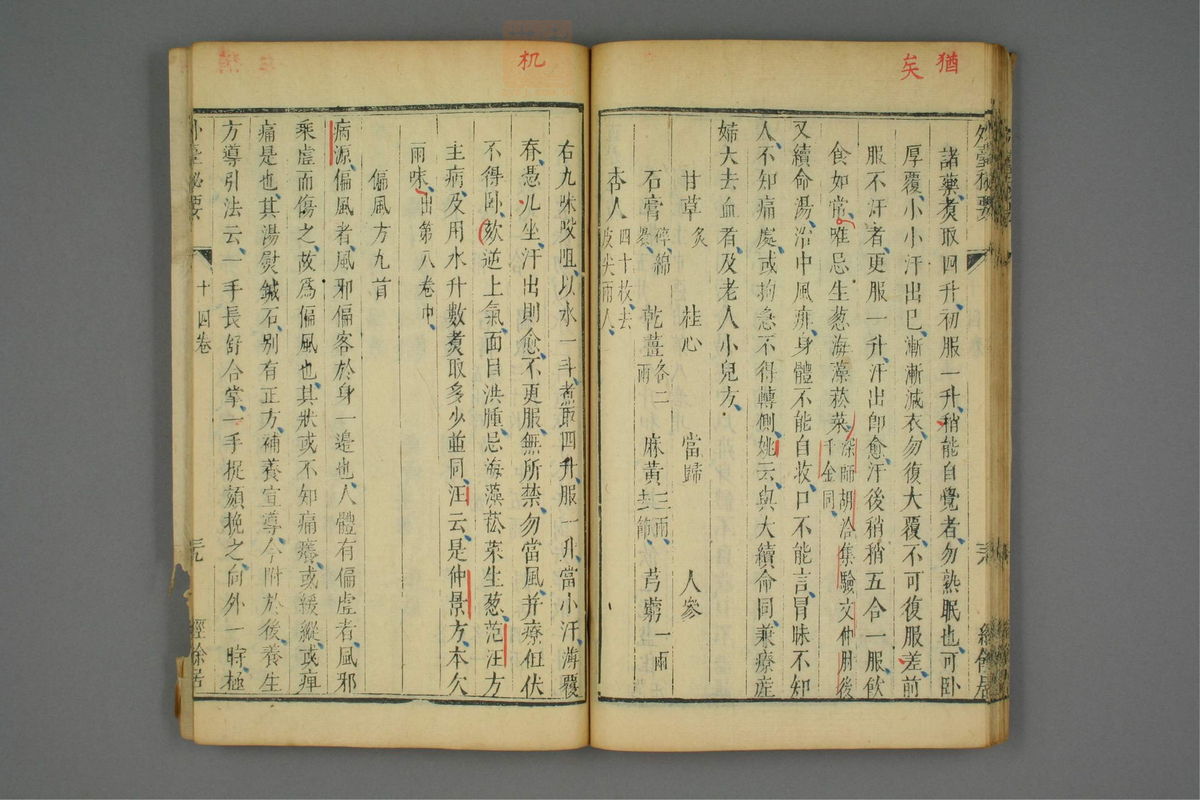 猶
矣
外臺秘要
諸藥煮取四升初服一升稍能自覺者勿熟眠也可卧
厚覆小小汗出已漸漸減衣勿復大覆不可復服差前
服不汗者更服一升汗出卽愈汗後稍稍五合一服飲
食如常唯忌生葱海藻菘菜深師胡洽集驗文仲肘後
千金同
又續命湯治中風痱身體不能自收口不能言冒昧不知
人不知痛處或拘急不得轉側姚云與大續命同兼療產
婦大去血者及老人小兒方
甘草炙 桂心 當歸 人參
石膏碎綿裹 乾薑各二兩 麻黃三兩去節 芎藭一兩
杏人四十枚去皮尖兩人
机
右九味㕮咀以水一斗煮取四升服一升當小汗薄覆
脊憑几坐汗出則愈不更服無所禁勿當風并療但伏
不得卧欬逆上氣面目洪腫忌海藻菘菜生葱范汪方
主病及用水升數煮取多少並同汪云是仲景方本欠
兩味出第八卷中
偏風方九首
病源偏風者風邪偏客於身一邊也人體有偏虛者風邪
乘虛而傷之故爲偏風也其狀或不知痛癢或緩縱或痺
痛是也其湯熨鍼石別有正方補養宣導今附於後養生
方導引法云一手長舒合掌一手捉頦挽之向外一時極
外臺秘要
十四卷
經餘居